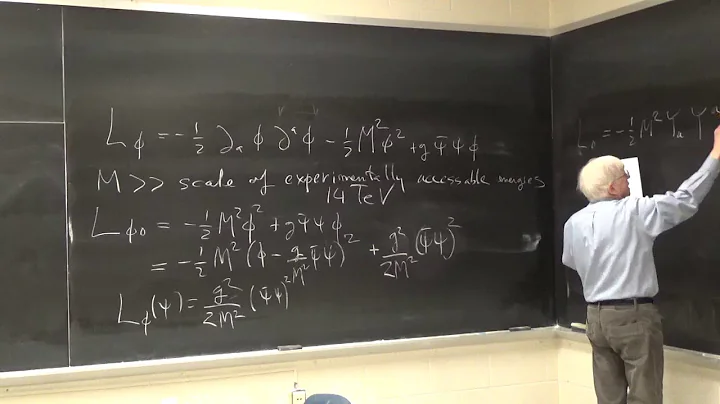 L_ϕ = -½ ∂ₐ ϕ ∂ᵃ ϕ - ½ M² ϕ² + g ψ̄ ψ ϕ
M >> scale of experimentally accessable energies
14 TeV
L_ϕ₀ = -½ M² ϕ² + g ψ̄ ψ ϕ
= -½ M² (ϕ - g/M² ψ̄ ψ)² + g²/2M² (ψ̄ ψ)²
L_ϕ (ψ) = g²/2M² (ψ̄ ψ)²
= -½ M² Yₐ Y